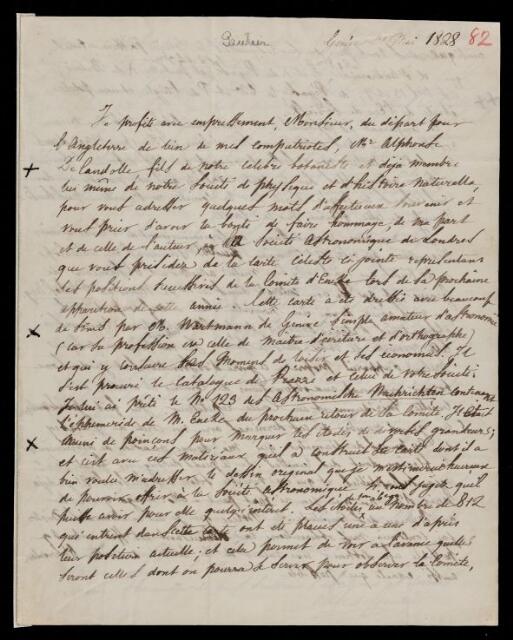 Gautier
Genève Mai 1828 82
Je profite avec empressement, Monsieur, du départ pour
l'Angleterre de l'un de mes compatriotes, Mr Alphonse
De Candolle fils de notre célèbre botaniste et déja membre
lui même de notre Société de physique et d'histoire naturelle,
pour vous adresser quelques mots d'affectueux souvenir et
vous prier d'avoir la bonté de faire hommage, de ma part
et de celle de l'auteur, à la Société Astronomique de Londres
que vous présidez de la carte céleste ci jointe représentant
les positions successives de la Comète d'Encke lors de sa prochaine
apparition de cette année. Cette carte a été dressée avec beaucoup
de soins par M. Wartmann de Genève simple amateur d'astronomie
(car sa profession est celle de maître d'écriture et d'orthographe)
et qui y consacre ses momens de loisir et ses économies. Il
s'est procuré le Catalogue de Piazzi et celui de votre Société;
Je lui ai prêté le No 123 des Astronomische Nachrichten contenant
l'éphéméride de M. Encke du prochain retour de la Comète; Il s'était
muni de poinçons pour marquer les étoiles de diverses grandeurs;
et c'est avec ces matériaux qu'il a construit la carte dont il a
bien voulu m'adresser le dessin original que je m'estime heureux
de pouvoir offrir à la Société astronomique
puisse avoir pour elle quelqu'intérêt. Les étoiles au nombre de 812
qui entrent dans cette carte ont été placées une à une d'après
leur position actuelle; et cela permet de voir à l'avance quelles
seront celles dont on pourra se servir pour observer la Comète,